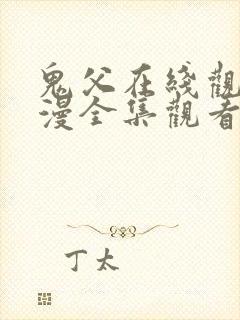 鬼父在綫觀
漫全集觀看
丁太